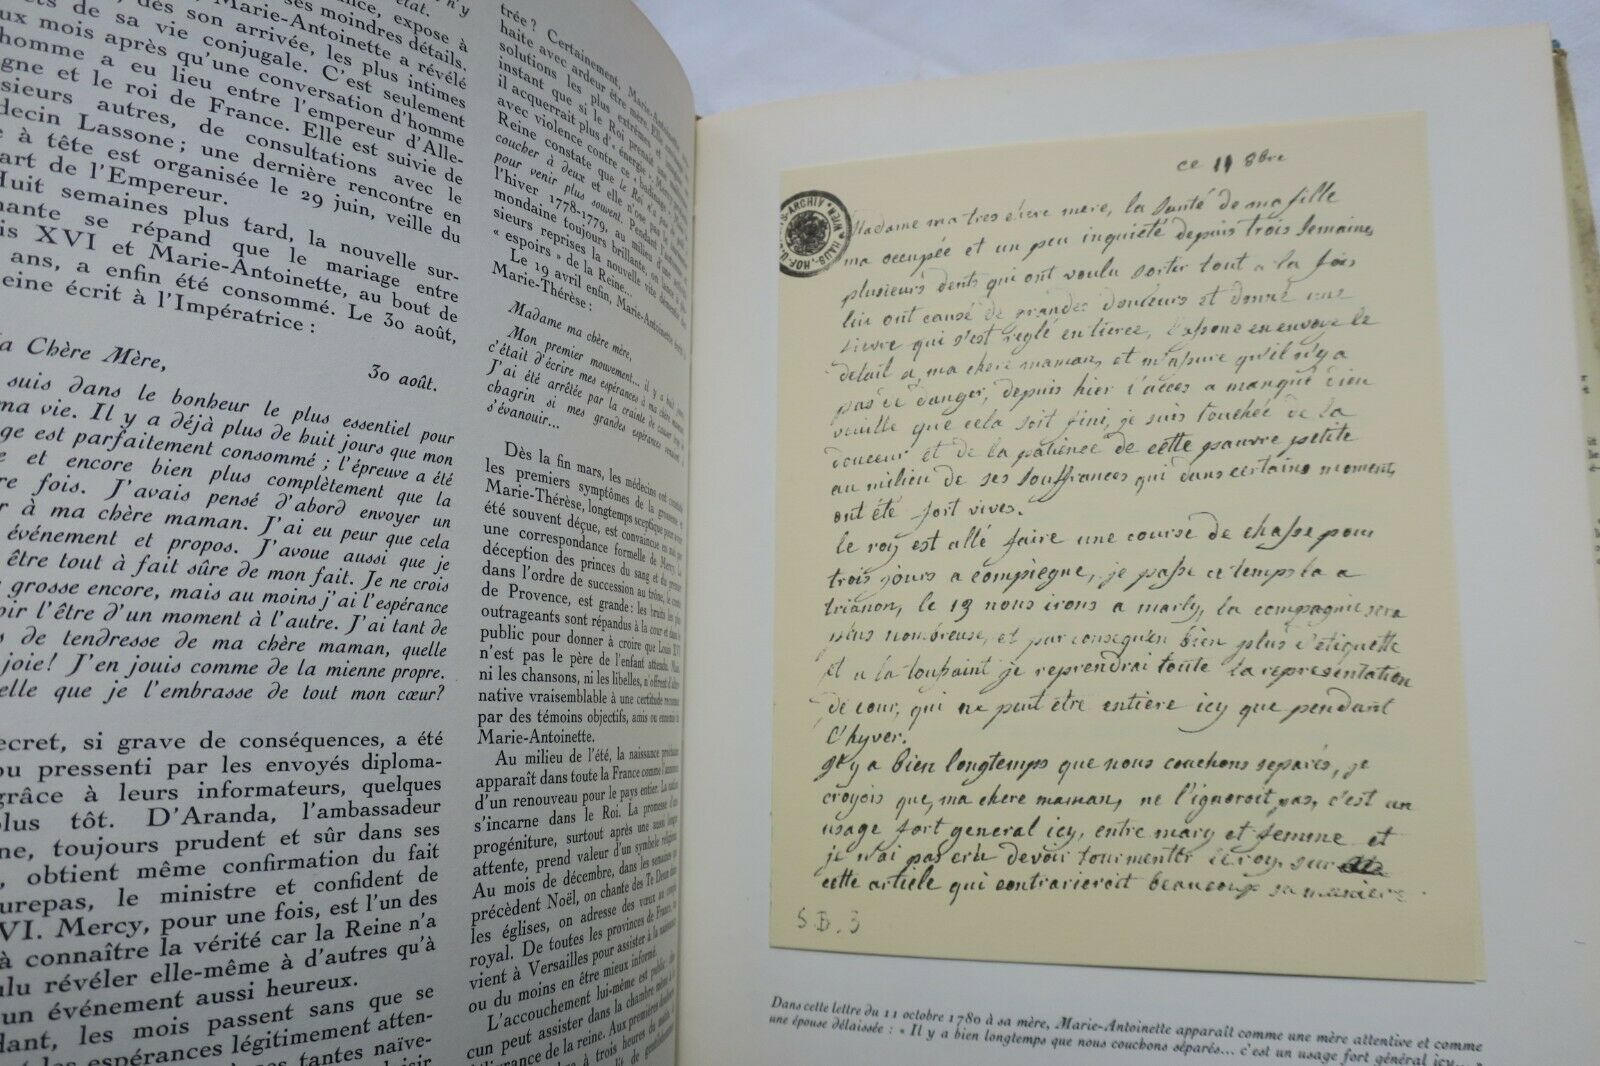 n'y
état.
France, expose à
ses moindres détails.
dès son arrivée, Marie-Antoinette a révélé
ets de sa vie conjugale. les plus intimes
ux mois après qu'une C'est seulement
homme a eu lieu entre l'empereur d'Alle-
gne et le roi de France. Elle est suivie de
sieurs autres, de consultations avec le
decin Lassone; une dernière rencontre en
e à tête est organisée le 29 juin, veille du
art de l'Empereur.
Huit semaines plus tard, la nouvelle sur-
nante se répand que le mariage entre
is XVI et Marie-Antoinette, au bout de
ans, a enfin été consommé. Le 30 août,
eine écrit à l'Impératrice :
a Chère Mère,
30 août.
suis dans le bonheur le plus essentiel pour
ma vie. Il y a déjà plus de huit jours que mon
ge est parfaitement consommé ; l'épreuve a été
e et encore bien plus complètement que la
re fois. J'avais pensé d'abord envoyer un
r à ma chère maman. J'ai eu peur que cela
événement et propos. J'avoue aussi que je
être tout à fait sûre de mon fait. Je ne crois
grosse encore, mais au moins j'ai l'espérance
oir l'être d'un moment à l'autre. J'ai tant de
s de tendresse de ma chère maman, quelle
joie! J'en jouis comme de la mienne propre.
elle que je l'embrasse de tout mon cœur?
ecret, si grave de conséquences, a été
ou pressenti par les envoyés diploma-
grâce à leurs informateurs, quelques
plus tôt. D'Aranda, l'ambassadeur
ne, toujours prudent et sûr dans ses
, obtient même confirmation du fait
urepas, le ministre et confident de
VI. Mercy, pour une fois, est l'un des
à connaître la vérité car la Reine n'a
ulu révéler elle-même à d'autres qu'à
un événement aussi heureux.
dant, les mois passent sans que se
les espérances légitimement atten-
tantes naïve-
trée ? Certainement, Marie-Antoinette
haite avec ardeur être mère. Elle
solutions les plus extrêmes et
instant que si le Roi prenait une
il acquerrait plus d'« énergie ». Mercy
avec violence contre ce « badinage
Reine constate que le Roi n'a pas de
coucher à deux et elle
pour venir plus souvent. Pendant
l'hiver 1778-1779, au milieu d'une
mondaine toujours brillante, on
sieurs reprises la nouvelle vite démentie
« espoirs » de la Reine...
Le 19 avril enfin, Marie-Antoinette écrit à
Marie-Thérèse :
Madame ma chère mère,
Mon premier mouvement... il y a huit jours,
c'était d'écrire mes espérances à ma chère maman.
J'ai été arrêtée par la crainte de causer trop de
chagrin si mes grandes espérances venaient à
s'évanouir...
Dès la fin mars, les médecins ont
les premiers symptômes de la grossesse.
Marie-Thérèse, longtemps sceptique pour avoir
été souvent déçue, est convaincue en mai par
une correspondance formelle de Mercy. La
déception des princes du sang et du
dans l'ordre de succession au trône, le comte
de Provence, est grande: les bruits les plus
outrageants sont répandus à la cour et dans le
public pour donner à croire que Louis XVI
n'est pas le père de l'enfant attendu. Mais,
ni les chansons, ni les libelles, n'offrent d'alter-
native vraisemblable à une certitude reconnue
par des témoins objectifs, amis ou ennemis de
Marie-Antoinette.
Au milieu de l'été, la naissance prochaine
apparaît dans toute la France comme l'annonce
d'un renouveau pour le pays entier. La nation
s'incarne dans le Roi. La promesse d'une
progéniture, surtout après une aussi longue
attente, prend valeur d'un symbole religieux.
Au mois de décembre, dans les semaines qui
précèdent Noël, on chante des Te Deum dans
les églises, on adresse des vœux au couple
royal. De toutes les provinces de France, on
vient à Versailles pour assister à la naissance
ou du moins en être mieux informé.
L'accouchement lui-même est public :
cun peut assister dans la chambre même à la
délivrance de la reine. Aux premières douleurs
à trois heures du matin,
ce 11 8bre
HAUS-, HOF-U. STAATS-ARCHIV * WIEN *
Madame ma tres chere mere, la santé de ma fille
ma occupée et un peu inquiété depuis trois semaines
plusieurs dents qui ont voulu sorter tout a la fois
lui ont causé de grandes douleurs et donné une
fievre qui s'est reglé entierce, lassone en envoye le
detail a ma chere maman, et m'assure qu'il n'y a
pas de danger, depuis hier l'acces a manqué dieu
veuille que cela soit fini, je suis touchée de la
douceur et de la patience de cette pauvre petite
au milieu de ses souffrances qui dans certains moments
ont été fort vives.
le roy est allé faire une course de chasse pour
trois jours a compiegne, je passe ce temps la a
trianon, le 13 nous irons a marly, la compagnie sera
plus nombreuse, et par consequen bien plus d'etiquette
et a la toussaint je reprendrai toute la representation
de cour, qui ne peut être entiere icy que pendant
l'hyver.
Il y a bien longtemps que nous couchons separés, je
croyois que, ma chere maman, ne l'ignoroit pas, c'est un
usage fort general icy, entre mary et femme et
je n'ai pas cru devoir tourmenter le roy sur
cette article qui contrarieroit beaucoup sa maniere
S.B. 3
Dans cette lettre du 11 octobre 1780 à sa mère, Marie-Antoinette apparaît comme une mère attentive et comme
une épouse délaissée : « Il y a bien longtemps que nous couchons séparés... c'est un usage fort général icy... »